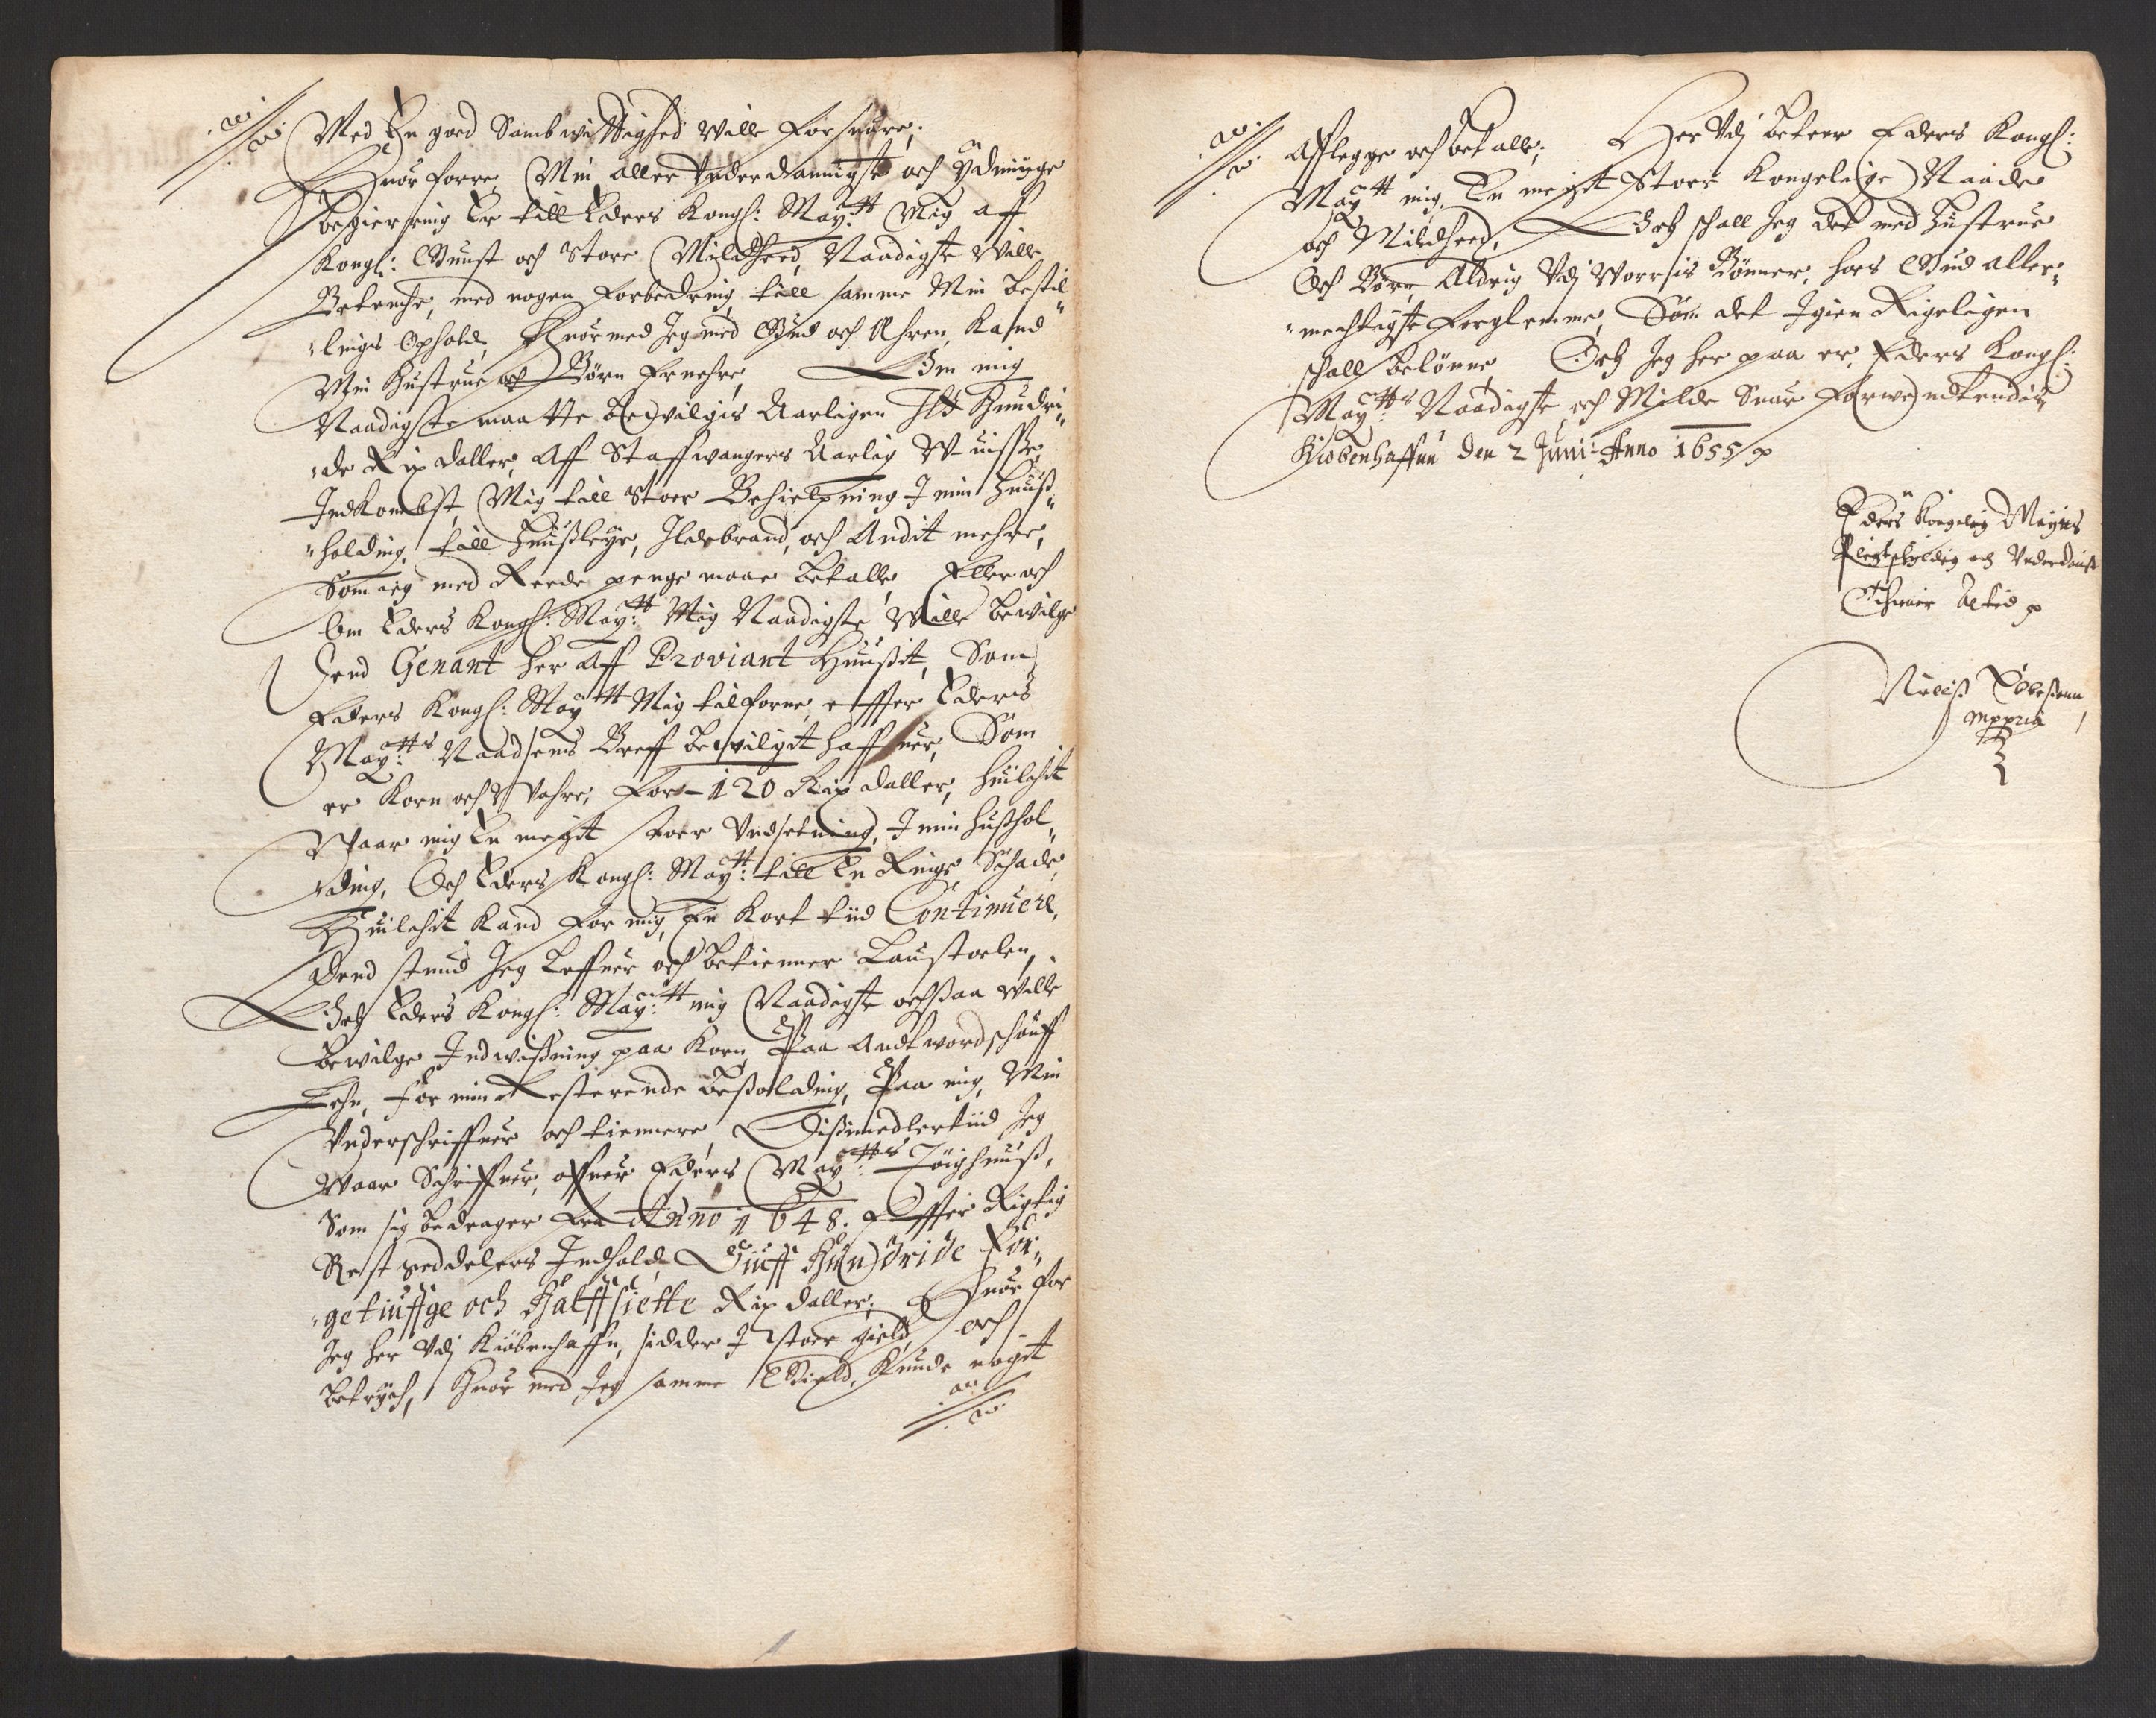 Med En goed Sambwittighed wille forsuare;
Huor forre Min aller Vnderdannigste och Ydmiuge
begierring Er till Eders Kongl: May:tt Mig aff
Kongl: Gunst och Store Mildheed, Naadigste wille
Betenche, med nogen forbedring till samme Min bestil
"lings Ophold, Huormed Jeg med Gud och Ehren, Kand
Min Hustrue och Børn Ernehre, Om mig
Naadigste maatte bewilgis Aarligen Hundri"
"de Rix daller, Aff Staffwangers Aarlig Wuisse
Indkombst, Mig till stoer Behielpning J min Huuß"
"holding, till Huußleye, Ildebrand, och Andit mehre,
Som ieg med Reede penge maae betalle, Eller och
Om Eders Kongl: May:tt Mig Naadigste Wille bewilge
Dend Genant her Aff Proviant Huußit, Som
Eders Kongl: May:tt Mig tilforne, effter Eders
May:tts Naadsens Breff bewilgit haffuer, Som
er Korn och Wahre, for 120 Rix daller, huilchit
Waar mig En megit stoer Vndsetning, J min Hußhol"
"ding, Och Eders Kongl: May:tt till En Ringe Schade,
Huilchit Kand for mig, En Kort tiid Continuere,
dend stund Jeg leffuer och betienner
Och Eders Kongl: May:tt mig Naadigste ochsaa wille
bewilge Indwißning paa Korn, Paa Andtwordschouff
Lehn, for min Resterende Besolding, Paa mig, Min
Vnderschriffuer och tiennere, Dißimedlertiid Jeg
Waar Schriffuer, offuer Eders May:tts Tøighuuß,
Som sig bedrager fra Anno 1648. Effter Rigtig
Rest zeddelers Indhold, Siuff Hundride For"
"getiuffge och Halffsiette Rix daller; Huor for
Jeg her Vdj Kiøbenhaffn, sidder J stoer gield, och
betrych, Huor med Jeg samme Gield, Kunde noget
Afflegge och betalle; Her Vdj beteer Eders Kongl:
May:tt mig, En megit Stoer Kongelige Naade
och Mildheed, Och schall Jeg det med Hustrue
Och Børn Aldrig Vdj Worris Bønner, hoes Gud aller"
"mechtigste forglemme, Som det Igien Rigeligen
schall Belønne Och Jeg her paa er, Eders Kongl:
May:tts Naadigste och Milde Suar forwendtendis
Kiøbenhaffun den 2 Juni Anno 1655 p
Eders Kongelig Mayttz
Pligtschyldig och Vnderdanigste
Thiener Altid p
Nielß Ebbeßenn
mppria